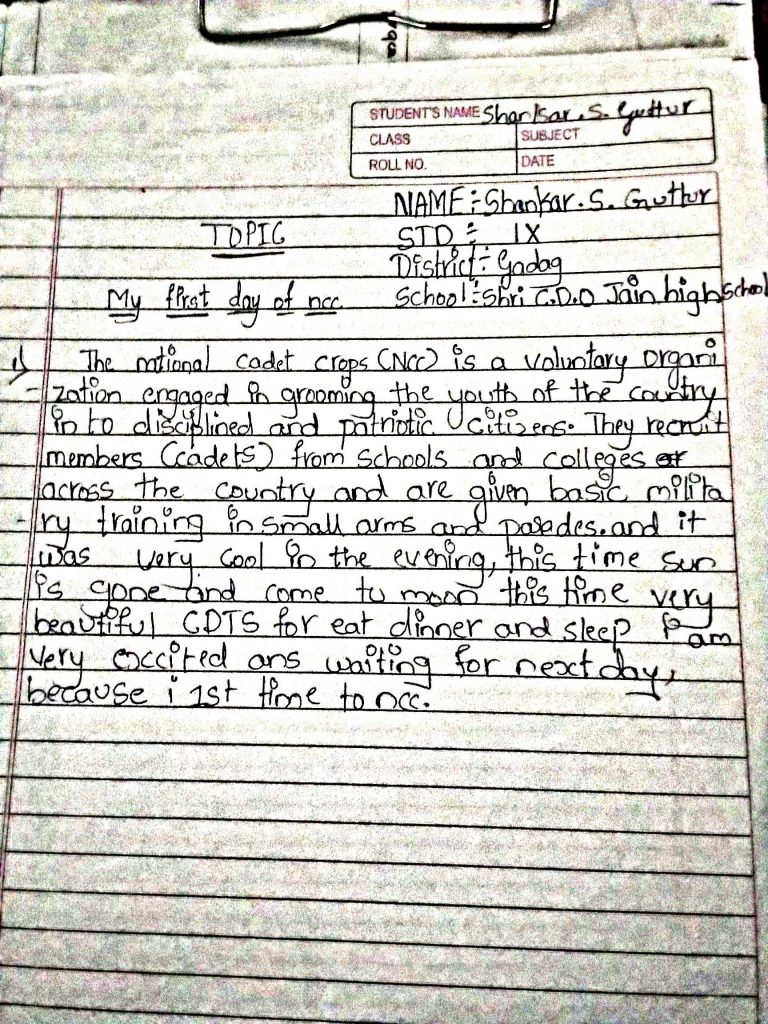 STUDENT'S NAME Shankar. S. Guttur
CLASS SUBJECT
ROLL NO. DATE
NAME:- Shankar. S. Guttur
TOPIC STD :- IX
District:- Gadag
My first day of ncc School:- Shri C.D.O Jain high school
1) The national cadet crops (Ncc) is a voluntary organi
- zation engaged in grooming the youth of the country
in to disciplined and patriotic citizens. They recruit
members (cadets) from schools and colleges
across the country and are given basic milita
- ry training in small arms and parades. and it
was very cool in the evening, this time sun
is gone and come to moon this time very
beautiful CDTS for eat dinner and sleep i am
very exccited ans waiting for next day,
because i 1st time to ncc.